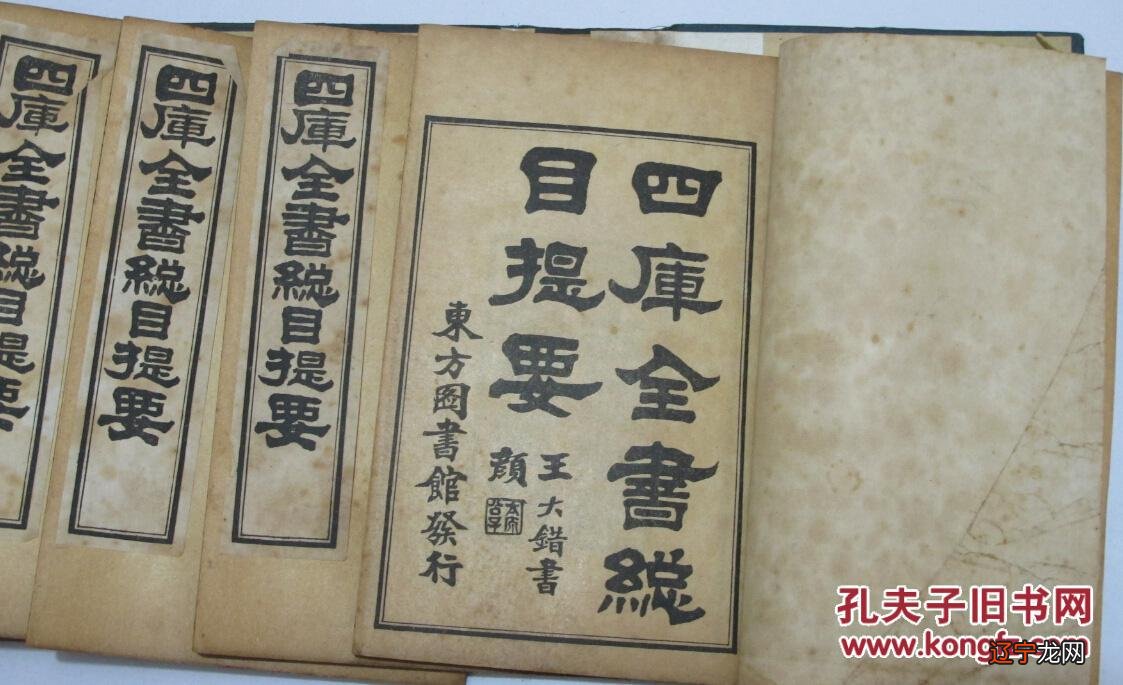 四庫全書緫
目提要
王大錯書
顔
太原
公子
東方圖書館發行
四庫全書緫目提要
四庫全書緫目提要
四庫全書緫目提要
孔夫子旧书网
www.kongfz.com
辽宁龙网